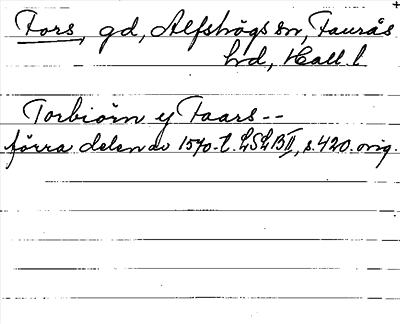 Fors, gd, Alfshögs sn, Faurås
hd, Hall. l
Torbiörn y Faars --
förra delen av 1570-t. LSLB II, s. 420. orig.